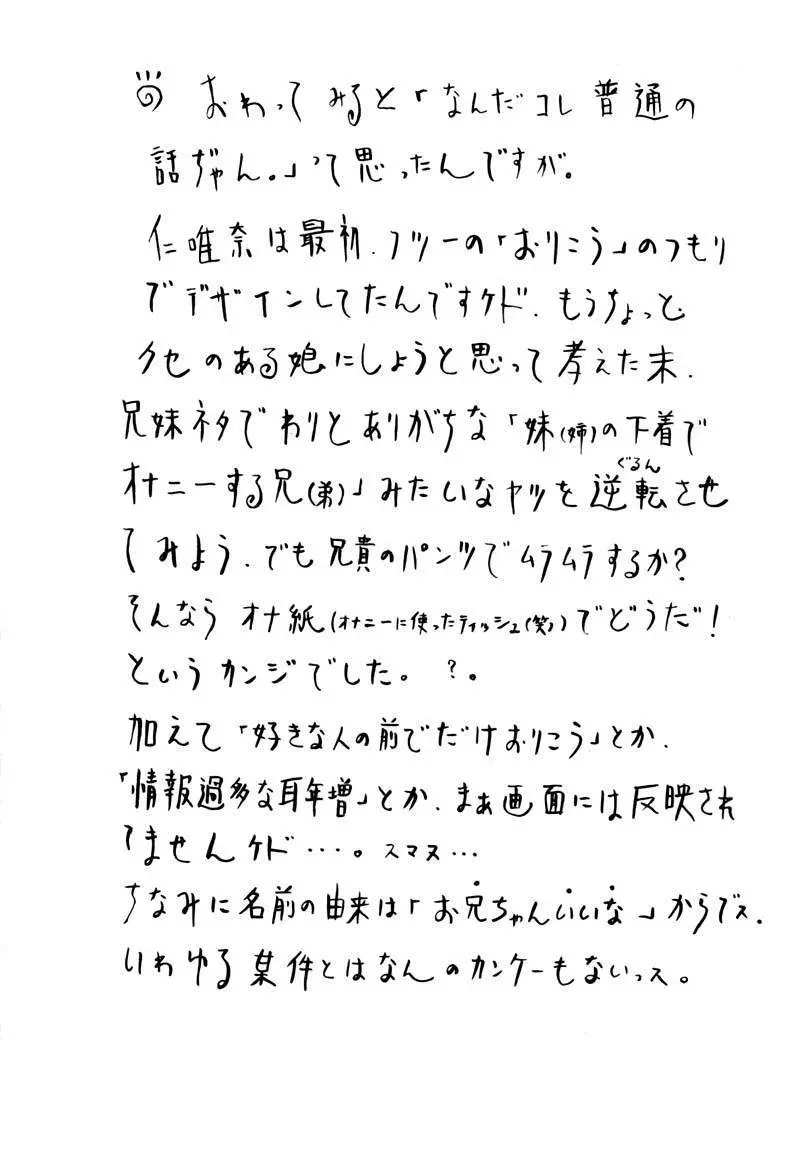 おわってみると「なんだコレ普通の
話ぢゃん。」って思ったんですが。
仁唯奈は最初、フツーの「おりこう」のつもり
でデザインしてたんですケド、もうちょっと
クセのある娘にしようと思って考えた末、
兄妹ネタでわりとありがちな「妹(姉)の下着で
オナニーする兄(弟)」みたいなヤツを逆転させ
ぐるん
てみよう、でも兄貴のパンツでムラムラするか?
そんなら オナ紙(オナニーに使ったティッシュ(笑))でどうだ!
というカンジでした。 ?。
加えて「好きな人の前でだけおりこう」とか、
「情報過多な耳年増」とか、まぁ画面には反映され
てませんケド…。スマヌ…
ちなみに名前の由来は「お兄ちゃんいいな」からでス、
いわゆる某件とはなんのカンケーもないっス。